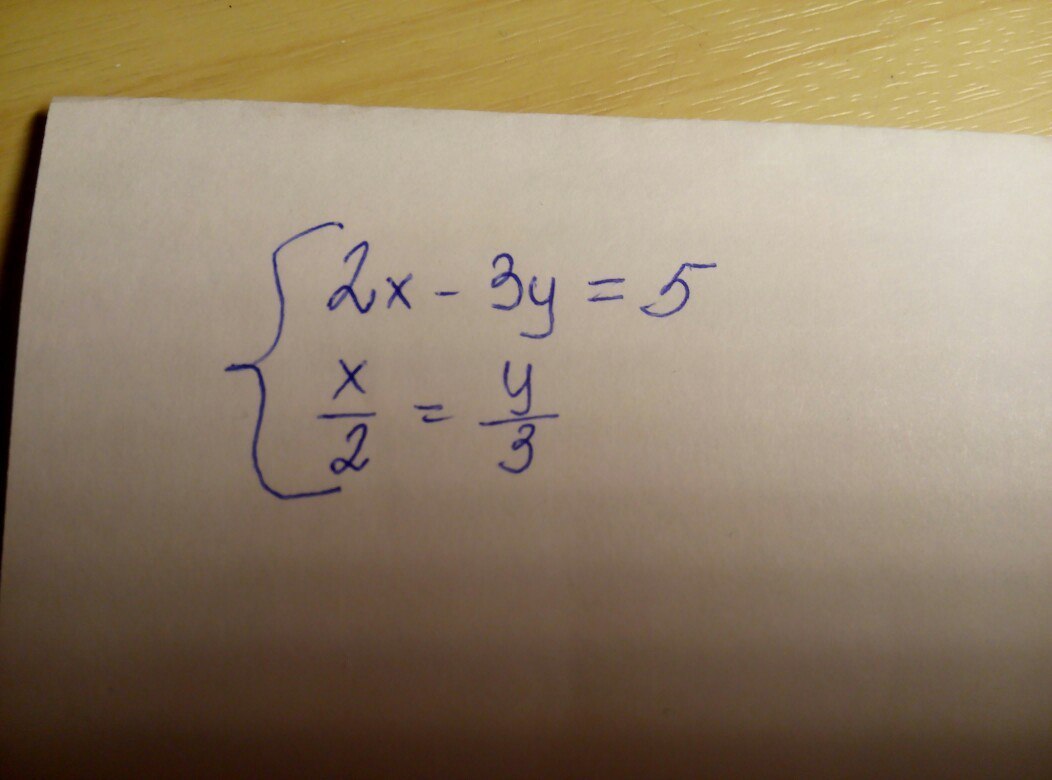 2x - 3y = 5
x/2 = y/3